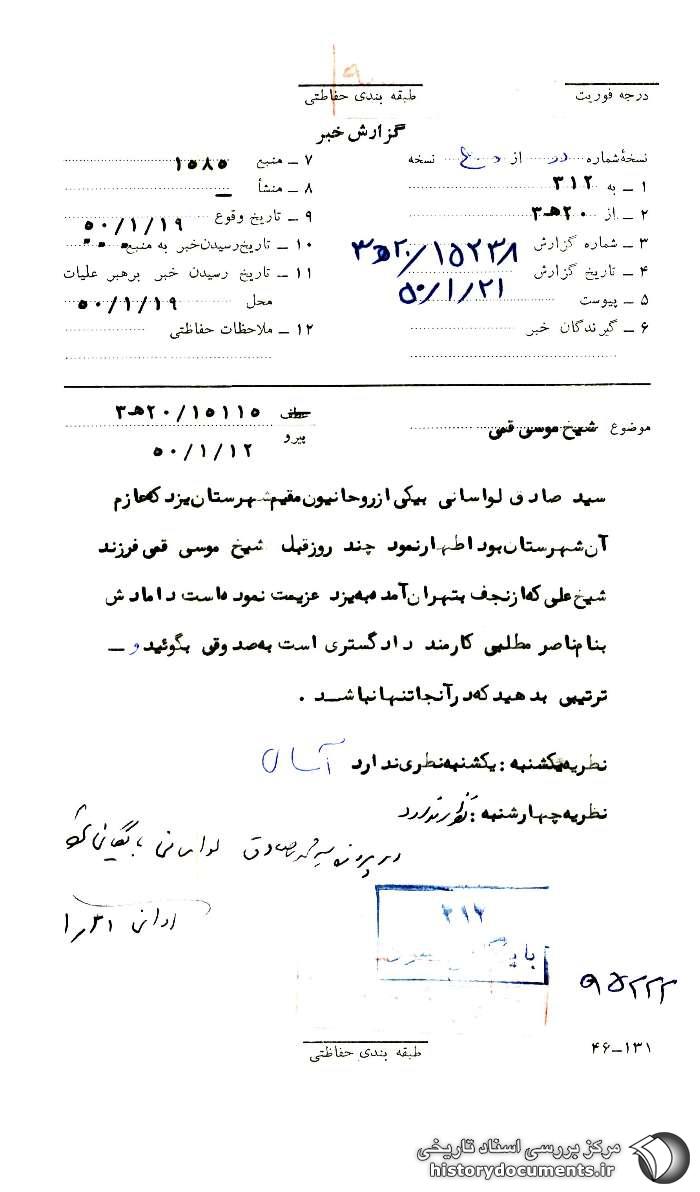 درجه فوریت
طبقه بندی حفاظتی
گزارش خبر
نسخهٔ شماره از نسخه
۱ ـ به ۳۱۲
۲ ـ از ۲۰هـ۳
۳ ـ شماره گزارش ۱۵۲۳۸/۲۰هـ۳
۴ ـ تاریخ گزارش ۵۰/۱/۲۱
۵ ـ پیوست
۶ ـ گیرندگان خبر
۷ ـ منبع ۱۵۸۵
۸ ـ منشأ ـ
۹ ـ تاریخ وقوع ۵۰/۱/۱۹
۱۰ ـ تاریخ رسیدن خبر به منبع
۱۱ ـ تاریخ رسیدن خبر برهبر عملیات
محل ۵۰/۱/۱۹
۱۲ ـ ملاحظات حفاظتی
موضوع شیخ موسی قمی
عطف ۱۵۱۱۵/۲۰هـ۳
پیرو ۵۰/۱/۱۲
سید صادق لواسانی بیکی از روحانیون مقیم شهرستان یزد که عازم
آن شهرستان بود اظهار نمود چند روز قبل شیخ موسی قمی فرزند
شیخ علی که از نجف بتهران آمده به یزد عزیمت نموده است دامادش
بنام ناصر مطلبی کارمند دادگستری است به صدوقی بگوئید و ـ
ترتیبی بدهید که در آنجا تنها نباشد .
نظریه یکشنبه : یکشنبه نظری ندارد
نظریه چهارشنبه : نظری ندارد
در پرونده سید محمد صادق لواسانی بایگانی شود
۳۱۲
۹۵۲۲۲
۱۳۱-۴۶
طبقه بندی حفاظتی
مرکز بررسی اسناد تاریخی
historydocuments.ir